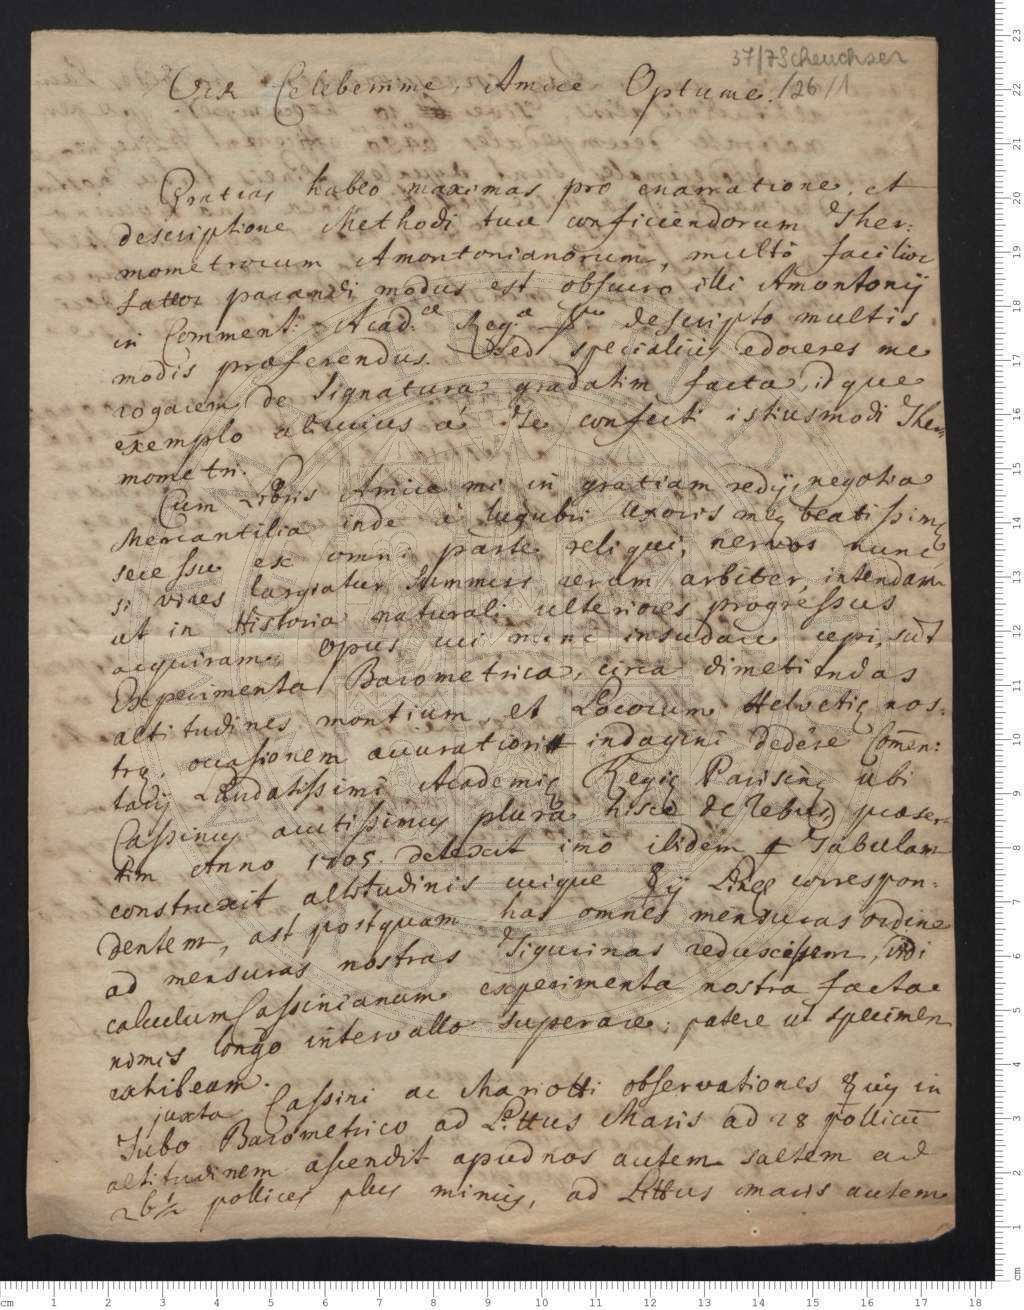 37/7 Scheuchzer
/26/1
Vir Celeberrime, Amice Optume.
Gratias habeo maximas pro enarratione, et
descriptione Methodi tuæ conficiendorum Ther:
mometrorum Amontonianorum, multò facilior
fateor parandi modus est obscuro illi Amontonij
in Comment: Acad.æ Reg.æ descripto multis
modis præferendus. Sed specialius edoceres me
rogarem de Signatura gradatim facta, idque
exemplo alicuius á Te confecti istiusmodi Ther,
mometri.
Cum Libris Amice mi in gratiam redij, negotia
Mercantilia inde à lugubri Uxoris meę beatissimę
secessu ex omni parte reliqui, nervos nunc
si vires largiatur Summus rerum arbiter, intendam
ut in Historia naturali ulteriores progressus
acquiram. Opus cui nunc insudare cepi, sūt
Experimenta Barometrica, circa dimetiendas
altitudines montium et Locorum Helvetię nos:
trę. occasionem accurationi indagini dedére Com̄en:
tarij Laudatissimi Academię Regię Parisinę ubi
Cassinus acutissimus plura hisce de rebus, præser-
tim Anno 1705. detexit imò ibidem Tabulam
construxit altitudinis cuique ☿ij Lineę correspon:
dentem, ast postquam has omnes mensuras ordine
ad mensuras nostras Tigurinas reduxissem, vidi
calculum Cassinianum experimenta nostra factae
nimis longo intervallo superare; patere ut specimen
exhibeam.
juxta Cassini ac Mariotti observationes ☿ij in
Tubo Barometrico ad Littus Maris ad 28 pollicū
altitudinem ascendit apud nos autem saltem ad
26½ pollices plus minus, ad Littus maris autem